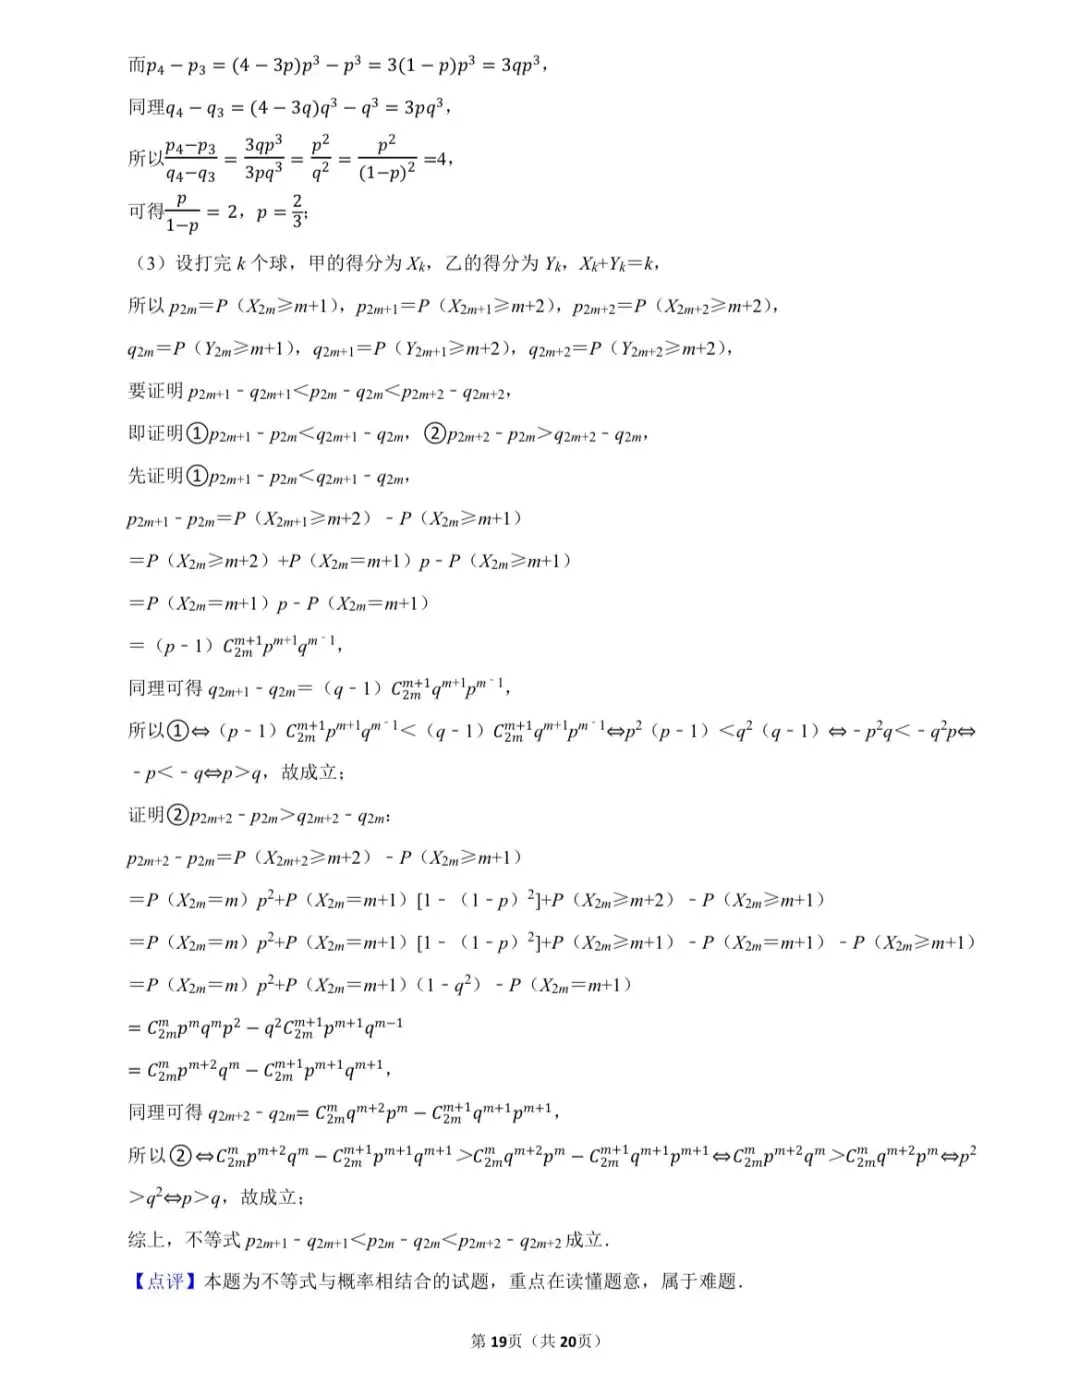 而p₄ − p₃ = (4 − 3p)p³ − p³ = 3(1 − p)p³ = 3qp³，
同理q₄ − q₃ = (4 − 3q)q³ − q³ = 3pq³，
所以\frac{p₄−p₃}{q₄−q₃} = \frac{3qp³}{3pq³} = \frac{p²}{q²} = \frac{p²}{(1−p)²} =4，
可得\frac{p}{1−p} = 2，p = \frac{2}{3}；
（3）设打完 k 个球，甲的得分为 X_k，乙的得分为 Y_k，X_k+Y_k＝k，
所以 p_{2m}＝P（X_{2m}≥m+1），p_{2m+1}＝P（X_{2m+1}≥m+2），p_{2m+2}＝P（X_{2m+2}≥m+2），
q_{2m}＝P（Y_{2m}≥m+1），q_{2m+1}＝P（Y_{2m+1}≥m+2），q_{2m+2}＝P（Y_{2m+2}≥m+2），
要证明 p_{2m+1}﹣q_{2m+1}＜p_{2m}﹣q_{2m}＜p_{2m+2}﹣q_{2m+2}，
即证明①p_{2m+1}﹣p_{2m}＜q_{2m+1}﹣q_{2m}，②p_{2m+2}﹣p_{2m}＞q_{2m+2}﹣q_{2m}，
先证明①p_{2m+1}﹣p_{2m}＜q_{2m+1}﹣q_{2m}，
p_{2m+1}﹣p_{2m}＝P（X_{2m+1}≥m+2）﹣P（X_{2m}≥m+1）
＝P（X_{2m}≥m+2）+P（X_{2m}＝m+1）p﹣P（X_{2m}≥m+1）
＝P（X_{2m}＝m+1）p﹣P（X_{2m}＝m+1）
＝（p﹣1）C_{2m}^{m+1}p^{m+1}q^{m﹣1}，
同理可得 q_{2m+1}﹣q_{2m}＝（q﹣1）C_{2m}^{m+1}q^{m+1}p^{m﹣1}，
所以①⇔（p﹣1）C_{2m}^{m+1}p^{m+1}q^{m﹣1}＜（q﹣1）C_{2m}^{m+1}q^{m+1}p^{m﹣1}⇔p²（p﹣1）＜q²（q﹣1）⇔﹣p²q＜﹣q²p⇔
﹣p＜﹣q⇔p＞q，故成立；
证明②p_{2m+2}﹣p_{2m}＞q_{2m+2}﹣q_{2m}：
p_{2m+2}﹣p_{2m}＝P（X_{2m+2}≥m+2）﹣P（X_{2m}≥m+1）
＝P（X_{2m}＝m）p²+P（X_{2m}＝m+1）[1﹣（1﹣p）²]+P（X_{2m}≥m+2）﹣P（X_{2m}≥m+1）
＝P（X_{2m}＝m）p²+P（X_{2m}＝m+1）[1﹣（1﹣p）²]+P（X_{2m}≥m+1）﹣P（X_{2m}＝m+1）﹣P（X_{2m}≥m+1）
＝P（X_{2m}＝m）p²+P（X_{2m}＝m+1）（1﹣q²）﹣P（X_{2m}＝m+1）
= C_{2m}^{m}p^{m}q^{m}p² − q²C_{2m}^{m+1}p^{m+1}q^{m−1}
= C_{2m}^{m}p^{m+2}q^{m} − C_{2m}^{m+1}p^{m+1}q^{m+1}，
同理可得 q_{2m+2}﹣q_{2m}= C_{2m}^{m}q^{m+2}p^{m} − C_{2m}^{m+1}q^{m+1}p^{m+1}，
所以②⇔C_{2m}^{m}p^{m+2}q^{m} − C_{2m}^{m+1}p^{m+1}q^{m+1}＞C_{2m}^{m}q^{m+2}p^{m} − C_{2m}^{m+1}q^{m+1}p^{m+1}⇔C_{2m}^{m}p^{m+2}q^{m}＞C_{2m}^{m}q^{m+2}p^{m}⇔p²
＞q²⇔p＞q，故成立；
综上，不等式 p_{2m+1}﹣q_{2m+1}＜p_{2m}﹣q_{2m}＜p_{2m+2}﹣q_{2m+2} 成立．
【点评】本题为不等式与概率相结合的试题，重点在读懂题意，属于难题．
第 19页（共 20页）